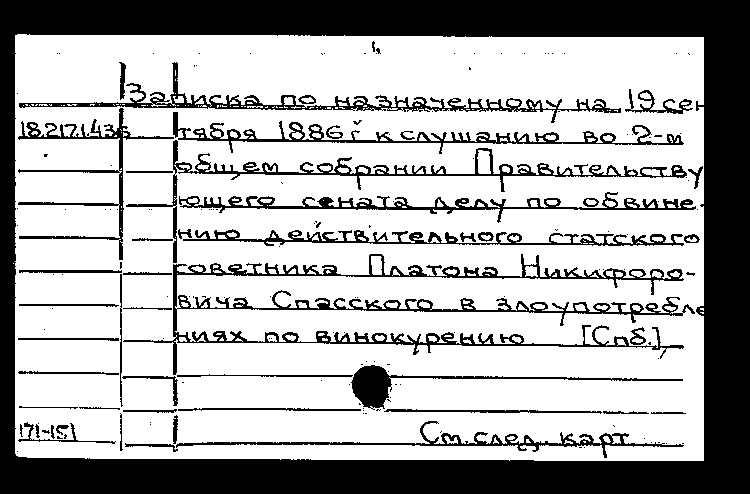 Записка по назначенному на 19 сен
18.217.1.436 тября 1886 г к слушанию во 2-м
общем собрании Правительству
ющего сената делу по обвине-
нию действительного статского
советника Платона Никифоро-
вича Спасского в злоупотребле
ниях по винокурению [Спб.],
171-151 См. след. карт.